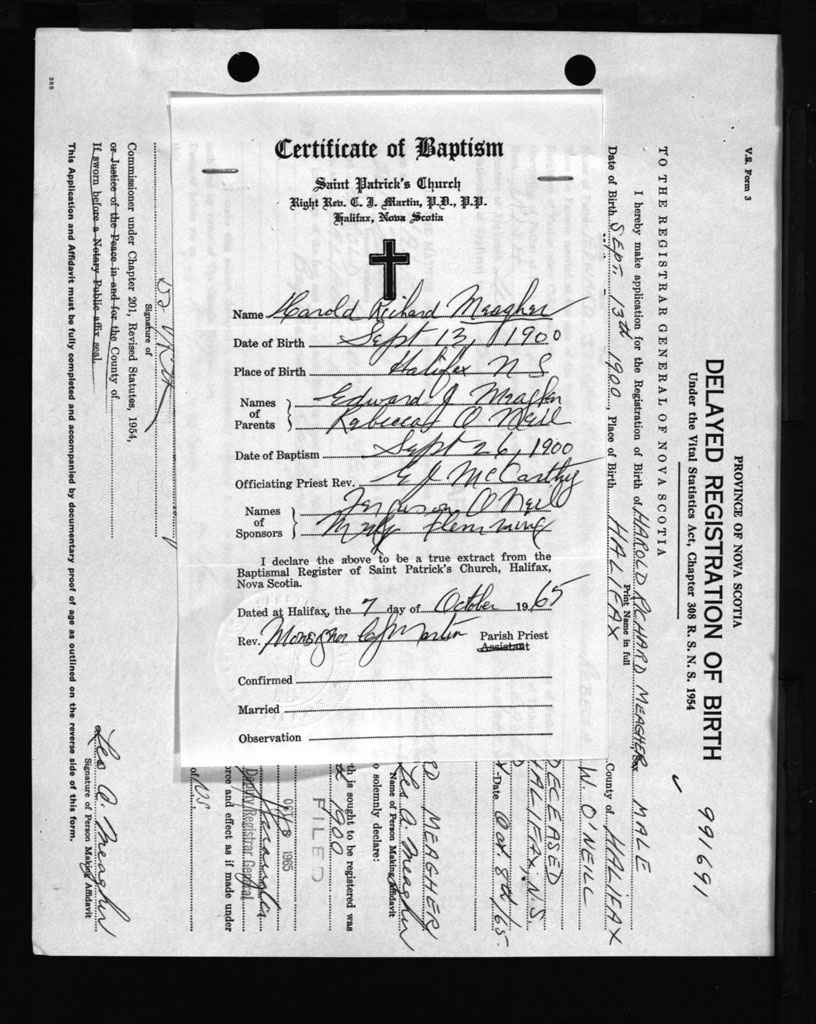 Certificate of Baptism
Saint Patrick's Church
Right Rev. C. J. Martin, P.D., P.P.
Halifax, Nova Scotia
Name Harold Richard Meagher
Date of Birth Sept 13, 1900
Place of Birth Halifax N S
Names of Parents } Edward J Meagher
Rebecca O Neill
Date of Baptism Sept 26, 1900
Officiating Priest Rev. E J McCarthy
Names of Sponsors } Ferguson O Neil
Mary Flemming
I declare the above to be a true extract from the
Baptismal Register of Saint Patrick's Church, Halifax,
Nova Scotia.
Dated at Halifax, the 7 day of October 1965
Rev. Monsignor C J Martin Parish Priest
Assistant
Confirmed
Married
Observation
V.S. Form 3
991691
PROVINCE OF NOVA SCOTIA
DELAYED REGISTRATION OF BIRTH
Under the Vital Statistics Act, Chapter 308 R. S. N. S. 1954
TO THE REGISTRAR GENERAL OF NOVA SCOTIA
I hereby make application for the Registration of Birth of HAROLD RICHARD MEAGHER Sex MALE
Print Name in full
Date of Birth SEPT. 13th 1900, Place of Birth HALIFAX County of HALIFAX
W. O'NEILL
DECEASED
HALIFAX, N.S
Date Oct. 8th/65.
MEAGHER
Leo A. Meagher
Name of Person Making Affidavit
o solemnly declare:
th is sought to be registered was
1900
FILED
OCT 1965
Deputy Registrar General
orce and effect as if made under
of NS
Signature of
Commissioner under Chapter 201, Revised Statutes, 1954,
or Justice of the Peace in and for the County of
If sworn before a Notary Public affix seal.
Leo A. Meagher
Signature of Person Making Affidavit
This Application and Affidavit must be fully completed and accompanied by documentary proof of age as outlined on the reverse side of this form.